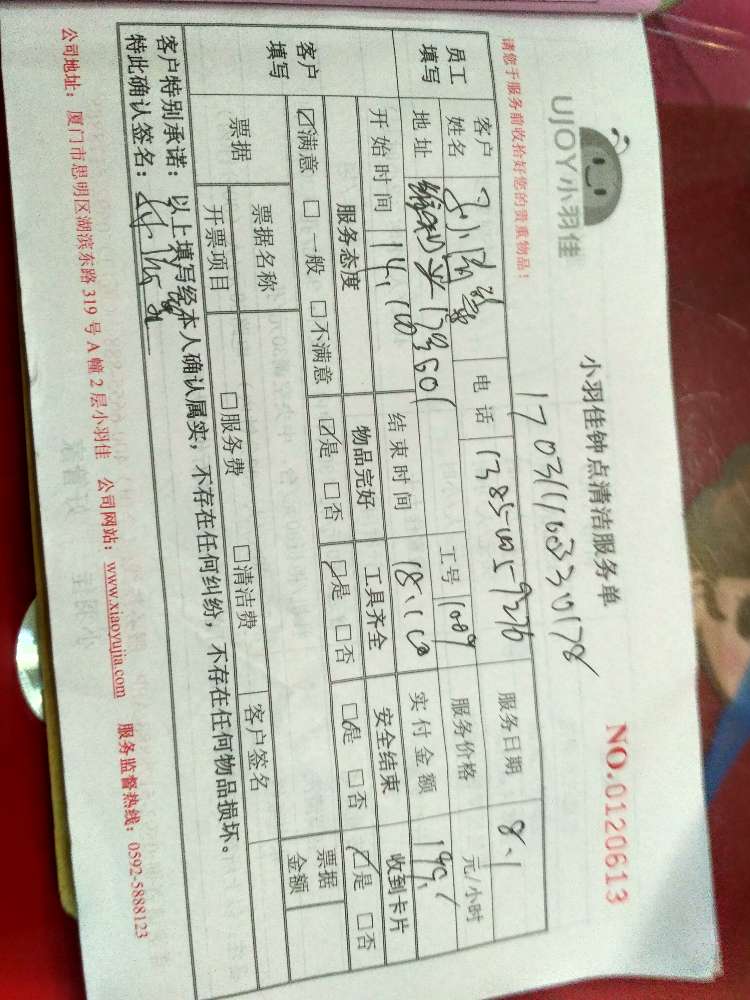 UJOY小羽佳
小羽佳钟点清洁服务单
NO.0120613
请您于服务前收拾好您的贵重物品！
员工填写
客户姓名
电话
服务日期 8.1
地址
工号 1009
服务价格 元/小时
开始时间
结束时间
实付金额
客户填写
服务态度 物品完好 工具齐全 安全结束 收到卡片
☑满意 □一般 □不满意 ☑是 □否 ☑是 □否 ☑是 □否 ☑是 □否
票据 票据名称 客户签名 票据金额
开票项目 □服务费 □清洁费
客户特别承诺：以上填写经本人确认属实，不存在任何纠纷，不存在任何物品损坏。
特此确认签名：
公司地址：厦门市思明区湖滨东路 319 号 A 幢 2 层小羽佳 公司网站：www.xiaoyujia.com 服务监督热线：0592-5888123